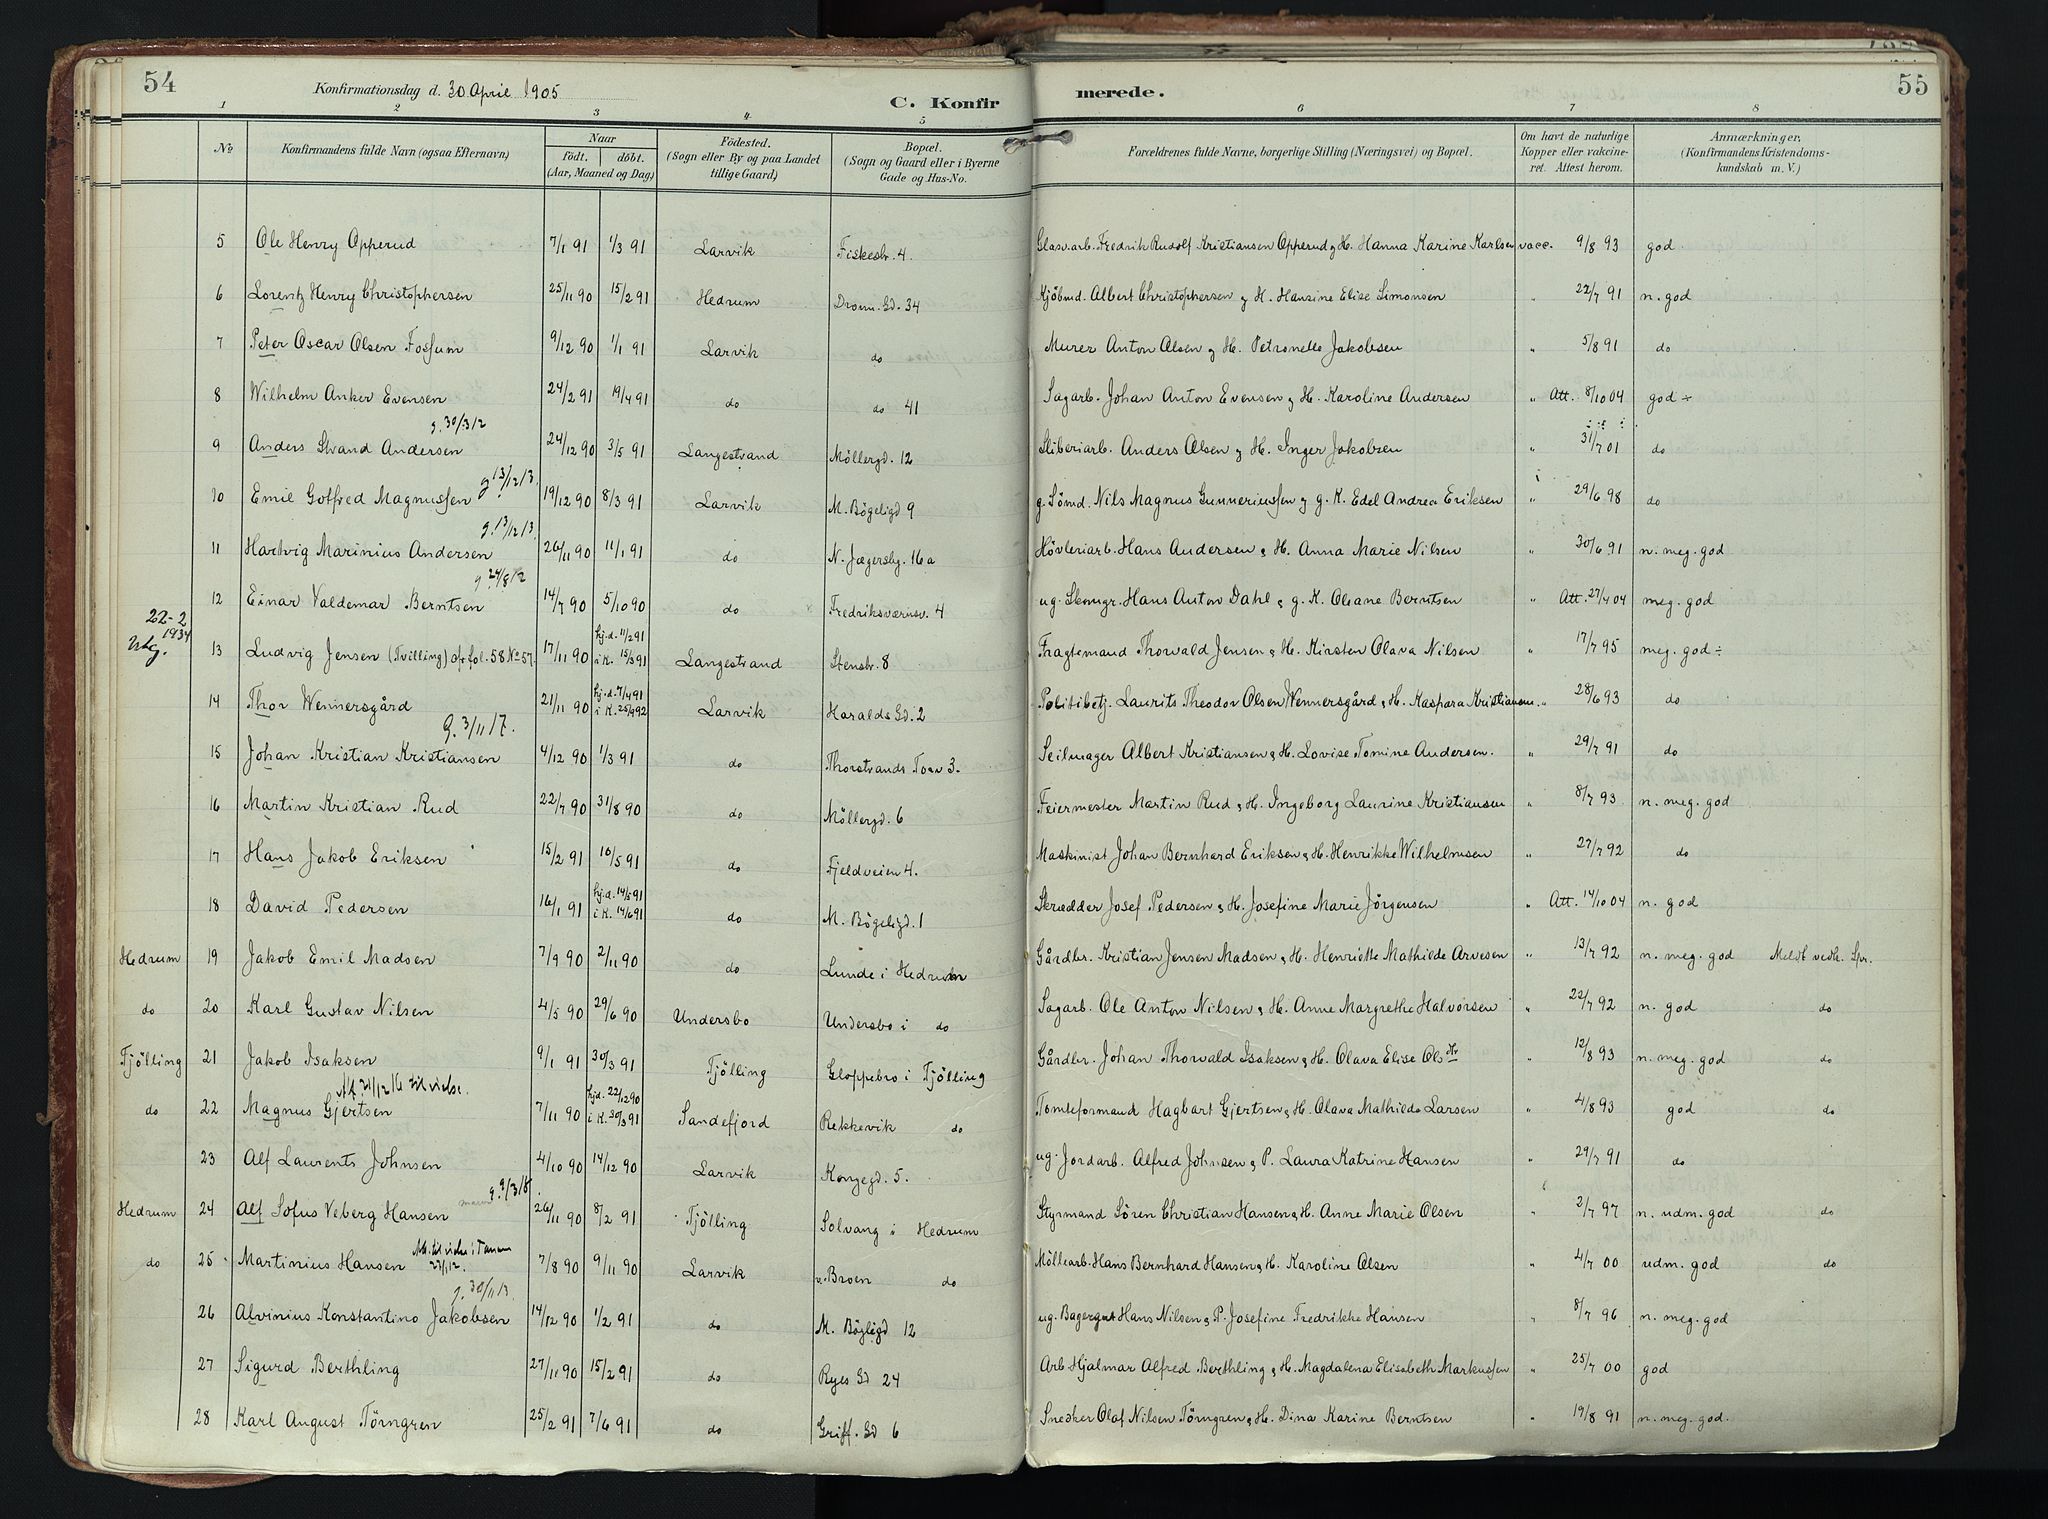 54
Konfirmationsdag d. 30 April 1905
C. Konfir
merede.
55
1 2 3 4 5 6 7 8
No
Konfirmandens fulde Navn (ogsaa Efternavn)
Naar
födt. döbt.
(Aar, Maaned og Dag)
Födested.
(Sogn eller By og paa Landet
tillige Gaard)
Bopæl.
(Sogn og Gaard eller i Byerne
Gade og Hus-No.
Forældrenes fulde Navne, borgerlige Stilling (Næringsvei) og Bopæl.
Om havt de naturlige
Kopper eller vakcine-
ret. Attest herom.
Anmærkninger,
(Konfirmandens Kristendoms-
kundskab m. V.)
5 Ole Henry Opperud 7/1 91 1/3 91 Larvik Fiskestr. 4. Glasv.arb. Fredrik Rudolf Kristiansen Opperud & H. Hanna Karine Karlsen vacc. 9/8 93 god
6 Lorentz Henry Christophersen 25/11 90 15/2 91 Hedrum Dronn. Gd. 34 Kjöbmd. Albert Christophersen & H. Hansine Elise Simonsen " 22/7 91 n. god
7 Peter Oscar Olsen Fossum 9/12 90 1/1 91 Larvik do Murer Anton Olsen & H. Petronelle Jakobsen " 5/8 91 do
8 Wilhelm Anker Evensen 24/2 91 19/4 91 do do 41 Sagarb. Johan Anton Evensen & H. Karoline Andersen " Att. 8/10 04 god ÷
g. 30/3 12
9 Anders Strand Andersen 24/12 90 3/5 91 Langestrand Möllergd. 12 Sliberiarb. Anders Olsen & H. Inger Jakobsen " 31/7 01 do
g 13/12 13.
10 Emil Gotfred Magnussen 19/12 90 8/3 91 Larvik M. Bögeligd 9 g. Sömd. Nils Magnus Gunneriussen & g. K. Edel Andrea Eriksen " 29/6 98 do
g. 13/12 13.
11 Hartvig Marinius Andersen 26/11 90 11/1 91 do N. Jægersbg. 16a Hövleriarb. Hans Andersen & H. Anna Marie Nilsen " 30/6 91 n. meg. god
g 24/8 12
12 Einar Valdemar Berntsen 14/7 90 5/10 90 do Fredriksværnsv. 4 ug. Skomgr. Hans Anton Dahl & g. K. Oleane Berntsen " Att. 27/4 04 meg. god
22-2
1934
Utg. 13 Ludvig Jensen (Tvilling) cfr fol. 58 No 57. 17/11 90 hj. d. 11/2 91 i K. 15/3 91 Langestrand Stenstr. 8 Fragtemand Thorvald Jensen & H. Kirsten Olava Nilsen " 17/7 95 meg. god ÷
14 Thor Wennersgård 21/11 90 hj. d. 7/4 91 i K. 25/9 92 Larvik Haralds Gd. 2 Politibetj. Laurits Theodor Olsen Wennersgård & H. Kaspara Kristiansen " 28/6 93 do
g. 3/11 17.
15 Johan Kristian Kristiansen 4/12 90 1/3 91 do Thorstrands Torv 3. Seilmager Albert Kristiansen & H. Lovise Tomine Andersen. " 29/7 91 do
16 Martin Kristian Rud 22/7 90 31/8 90 do Möllergd. 6 Feiermester Martin Rud & H. Ingeborg Laurine Kristiansen " 8/7 93. n. meg. god
17 Hans Jakob Eriksen 15/2 91 10/5 91 do Fjeldveien 4. Maskinist Johan Bernhard Eriksen & H. Henrikke Wilhelmsen " 27/7 92 do
18 David Pedersen 16/1 91 hj. d. 14/5 91 i K. 14/6 91 do M. Bögeligd. 1 Skrædder Josef Pedersen & H. Josefine Marie Jörgensen " Att. 14/10 04 n. god
Hedrum 19 Jakob Emil Madsen 7/9 90 2/11 90 do Lunde i Hedrum Gårdbr. Kristian Jensen Madsen & H. Henriette Mathilde Arvesen " 13/7 92 n. meg. god Meldt vedk. Spr.
do 20 Karl Gustav Nilsen 4/5 90 29/6 90 Undersbo Undersbo i do Sagarb. Ole Anton Nilsen & H. Anne Margrethe Halvorsen " 22/7 92 n. god do
Tjölling 21 Jakob Isaksen 9/1 91 30/3 91 Tjölling Gloppebro i Tjölling Gårdbr. Johan Thorvald Isaksen & H. Olava Elise Olsdtr " 12/8 93 n. meg. god do
Att. 21/12 16 til vielse.
do 22 Magnus Gjertsen 7/11 90 hjd. 22/12 90 i K. 30/3 91 Sandefjord Rekkevik do Tomteformand Hagbart Gjertsen & H. Olava Mathilde Larsen " 4/8 93 god do
23 Alf Laurents Johnsen 4/10 90 14/12 90 Larvik Kongegd. 5. ug. Jordarb. Alfred Johnsen & P. Laura Katrine Hansen " 29/7 91 do
g. 9/3 18
Hedrum 24 Alf Sofus Veberg Hansen 26/11 90 8/2 91 Tjölling Solvang i Hedrum Styrmand Sören Christian Hansen & H. Anne Marie Olsen " 2/7 97 n. udm. god do
Att. til vielse i Tanum
27/1 12.
do 25 Martinius Hansen 7/8 90 9/11 90 Larvik v. Broen do Möllearb. Hans Bernhard Hansen & H. Karoline Olsen " 4/7 00 udm. god do
g. 30/11 13.
26 Alvinius Konstantino Jakobsen 14/12 90 1/2 91 do M. Bögligd 12 ug. Bagergut Hans Nilsen & P. Josefine Fredrikke Hansen " 8/7 96 n. meg. god
27 Sigurd Berthling 27/11 90 15/2 91 do Ryes Gd 24 Arb Hjalmar Alfred Berthling & H. Magdalena Elisabeth Markussen " 25/7 00 god
28 Karl August Törngren 25/2 91 7/6 91 do Griff. Gd 6 Snedker Olaf Nilsen Törngren & H. Dina Karine Berntsen " 19/8 91 n. meg. god.